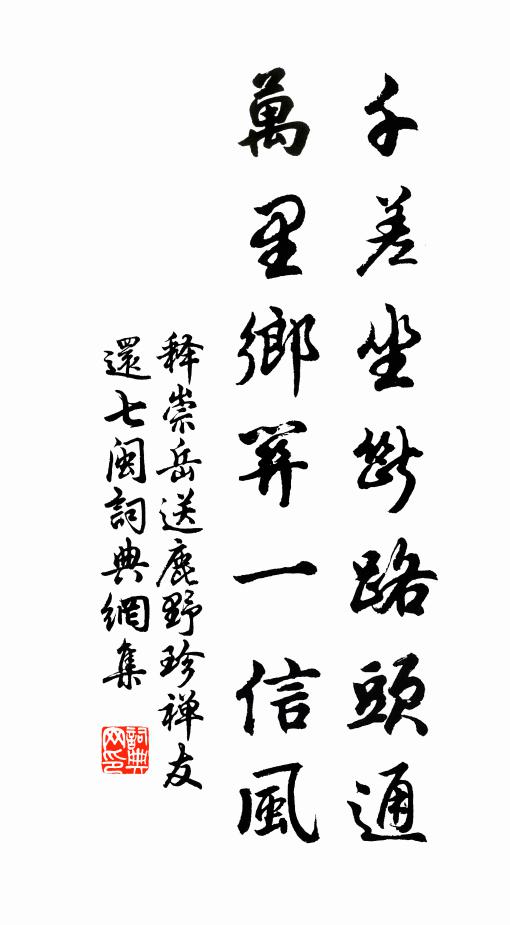 千差坐斷路頭通
萬里鄉關一信風
释崇岳送鹿野珍禅友
還七闽詞典網集
詞典
网印